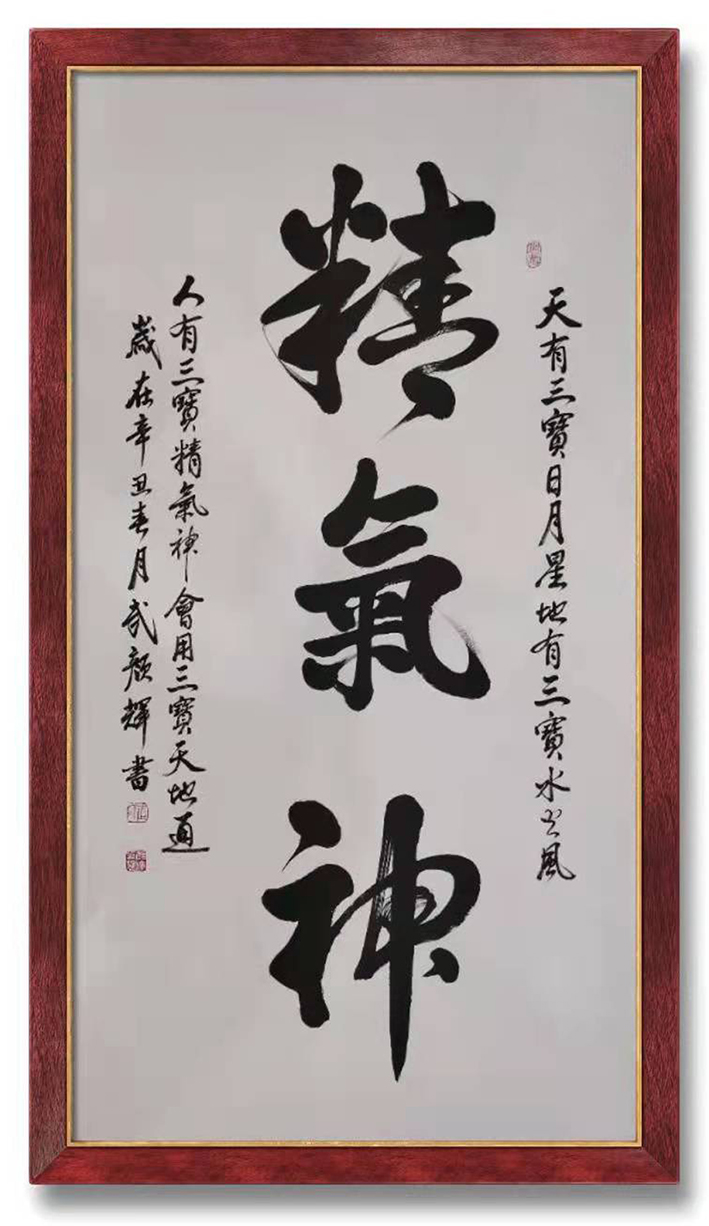 天有三寶日月星地有三寶水火風
精氣神
人有三寶精氣神會用三寶天地通
歲在辛丑春月武顏輝書